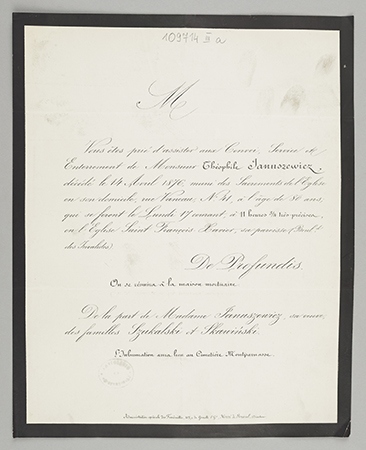 109714 III a
M
Vous êtes prié d'assister aux Convoi, Service et
Enterrement de Monsieur Théophile Januszewicz,
décédé le 14 Avril 1876, muni des Sacrements de l'Eglise
en son domicile, rue Vaneau, N° 41, à l'âge de ans,
qui se feront le Lundi 17 courant, à 11 heures très précises,
en l'Eglise Saint François Xavier, sa paroisse (Boul.d
des Invalides).
De Profundis.
On se réunira à la maison mortuaire.
De la part de Madame Januszewicz, sa veuve,
des familles Szukalski et Skawiński.
L'Inhumation aura lieu au Cimetière Montparnasse.